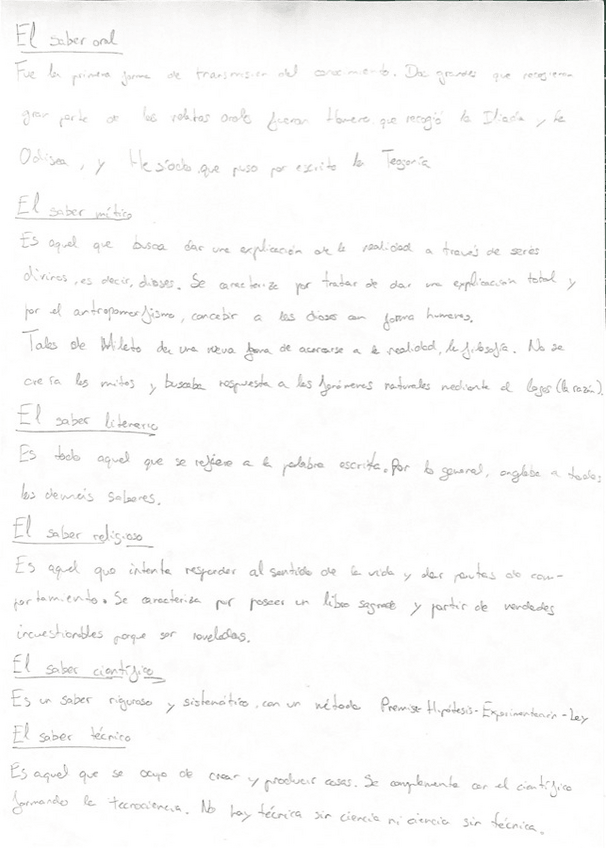 El saber oral
Fue la primera forma de transmisión del conocimiento. Dos grandes que recogieron
gran parte de los relatos orales fueron Homero, que recogió la Iliada y la
Odisea, y Hesíodo, que puso por escrito la Teogonía
El saber mítico
Es aquel que busca dar una explicación de la realidad a través de seres
divinos, es decir, dioses. Se caracteriza por tratar de dar una explicación total y
por el antropomorfismo, concebir a los dioses con forma humana.
Tales de Mileto da una nueva forma de acercarse a la realidad, la filosofía. No se
creía los mitos y buscaba respuesta a los fenómenos naturales mediante el logos (la razón).
El saber literario
Es todo aquel que se refiere a la palabra escrita. Por lo general, engloba a todos
los demás saberes.
El saber religioso
Es aquel que intenta responder al sentido de la vida y dar pautas de com-
portamiento. Se caracteriza por poseer un libro sagrado y partir de verdades
incuestionables porque son reveladas.
El saber científico
Es un saber riguroso y sistemático, con un método Premisa-Hipótesis-Experimentación-Ley
El saber técnico
Es aquel que se ocupa de crear y producir cosas. Se complementa con el científico
formando la tecnociencia. No hay técnica sin ciencia ni ciencia sin técnica.